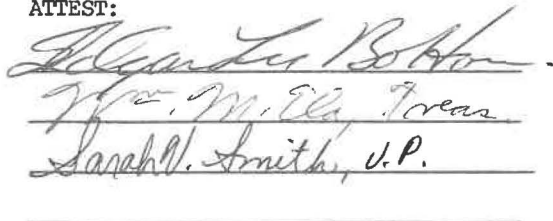 ATTEST:
Edgar Lee Bottom
Wm. M. Ela, Treas.
Sarah V. Smith, V.P.